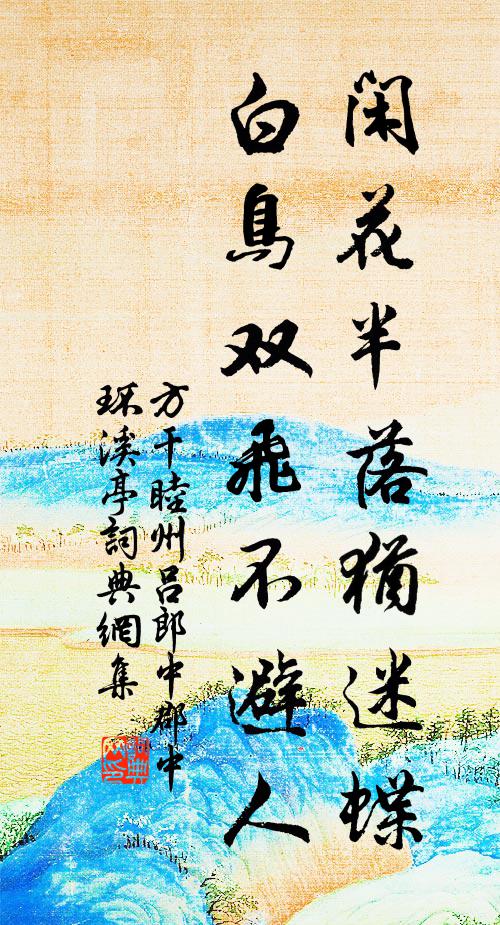 闲花半落犹迷蝶
白鳥双飛不避人
方干睦州吕郎中郡中
环溪亭詞典網集